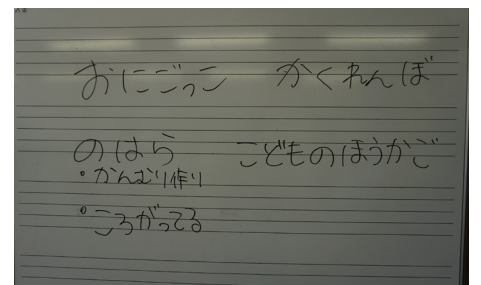 おにごっこ かくれんぼ
のはら こどものほうかご
・かんむり作り
・ころがってる